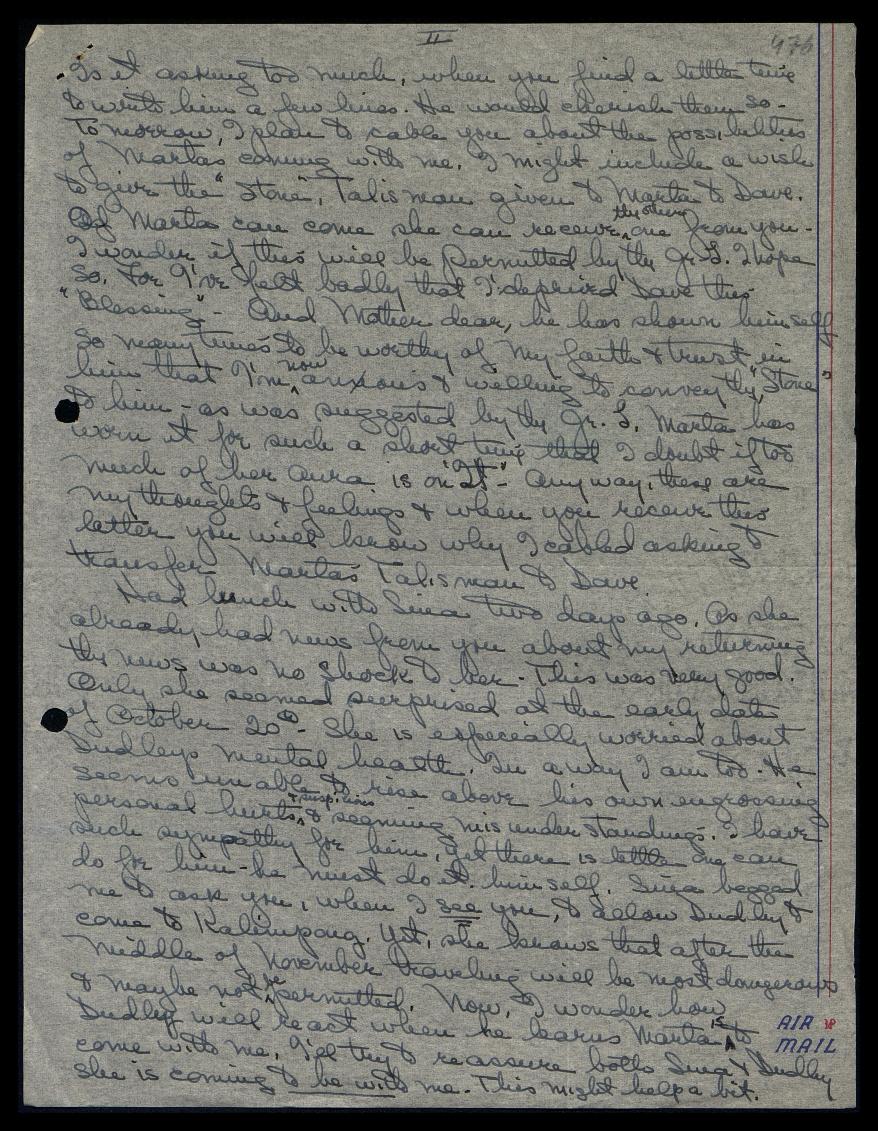 II
476
Is it asking too much, when you find a little time
to write him a few lines. He would cherish them so -
Tomorrow, I plan to cable you about the possibilities
of Marta's coming with me. I might include a wish
to give the "Stone", Talisman given to Marta to Dave.
If Marta can come she can receive the other one from you -
I wonder if this will be permitted by the Gr. L. I hope
so. For I've felt badly that I deprived Dave this
"Blessing" - And Mother dear, he has shown himself
so many times to be worthy of my faith & trust in
him that I'm now anxious & willing to convey the "Stone"
to him - as was suggested by the Gr. L. Marta has
worn it for such a short time that I doubt if too
much of her aura is on "It" - Anyway, these are
my thoughts & feelings & when you receive this
letter you will know why I cabled asking to
transfer Marta's Talisman to Dave.
Had lunch with Sina two days ago. As she
already had news from you about my returning
the news was no shock to her - This was very good.
Only she seemed surprised at the early date
of October 20th - She is especially worried about
Dudley's mental health. In a way I am too. He
seems unable to rise above his own engrossing
personal hurts, + suspicions & seeming misunderstandings. I have
such sympathy for him, yet there is little one can
do for him - he must do it himself. Sina begged
me to ask you, when I see you, to allow Dudley to
come to Kalimpong. Yet, she knows that after the
middle of November traveling will be most dangerous
& maybe not be permitted. Now, I wonder how
Dudley will react when he learns Marta is to
come with me. I'll try to reassure both Sina & Dudley
she is coming to be with me. This might help a bit.
AIR
MAIL